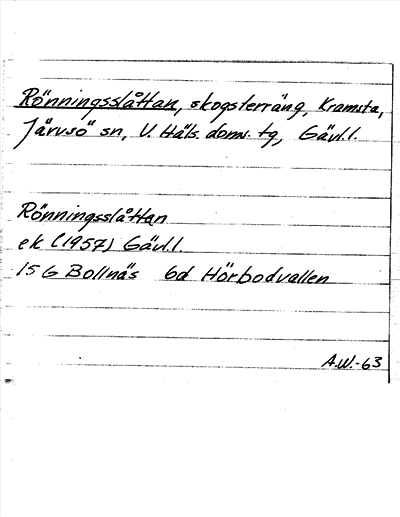 Rönningsslåttan, skogsterräng, Kramsta,
Järvsö sn, V. Häls. doms. tg, Gävl.l.
Rönningsslåttan
ek (1957) Gävl.l.
15 G Bollnäs 6d Hörbodvallen
A.W.-63